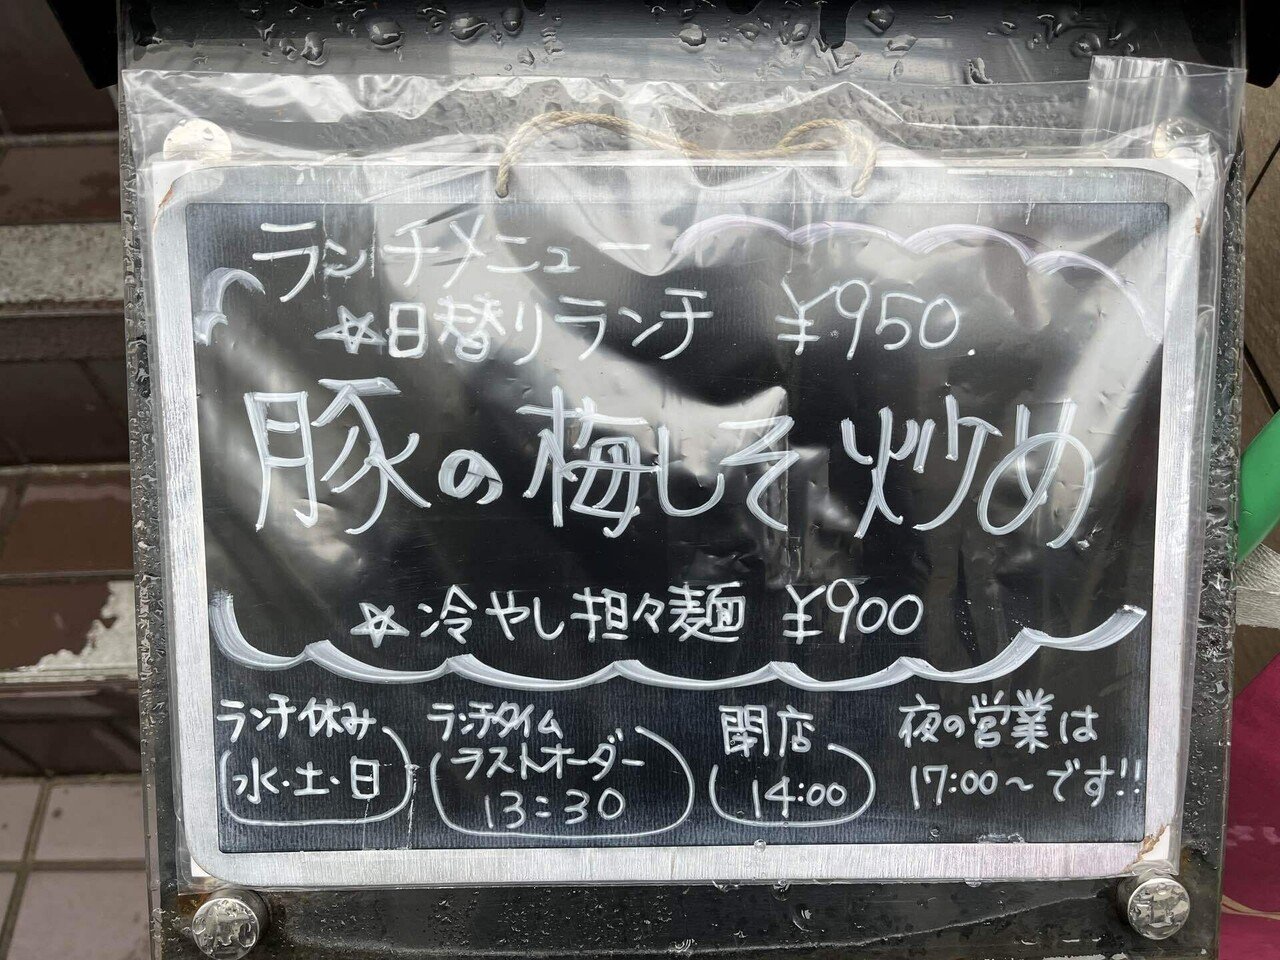 ランチメニュー
☆日替りランチ ¥950.
豚の梅しそ炒め
☆冷やし担々麺 ¥900
ランチ休み
水・土・日
ランチタイム
ラストオーダー
13:30
閉店
14:00
夜の営業は
17:00～です!!